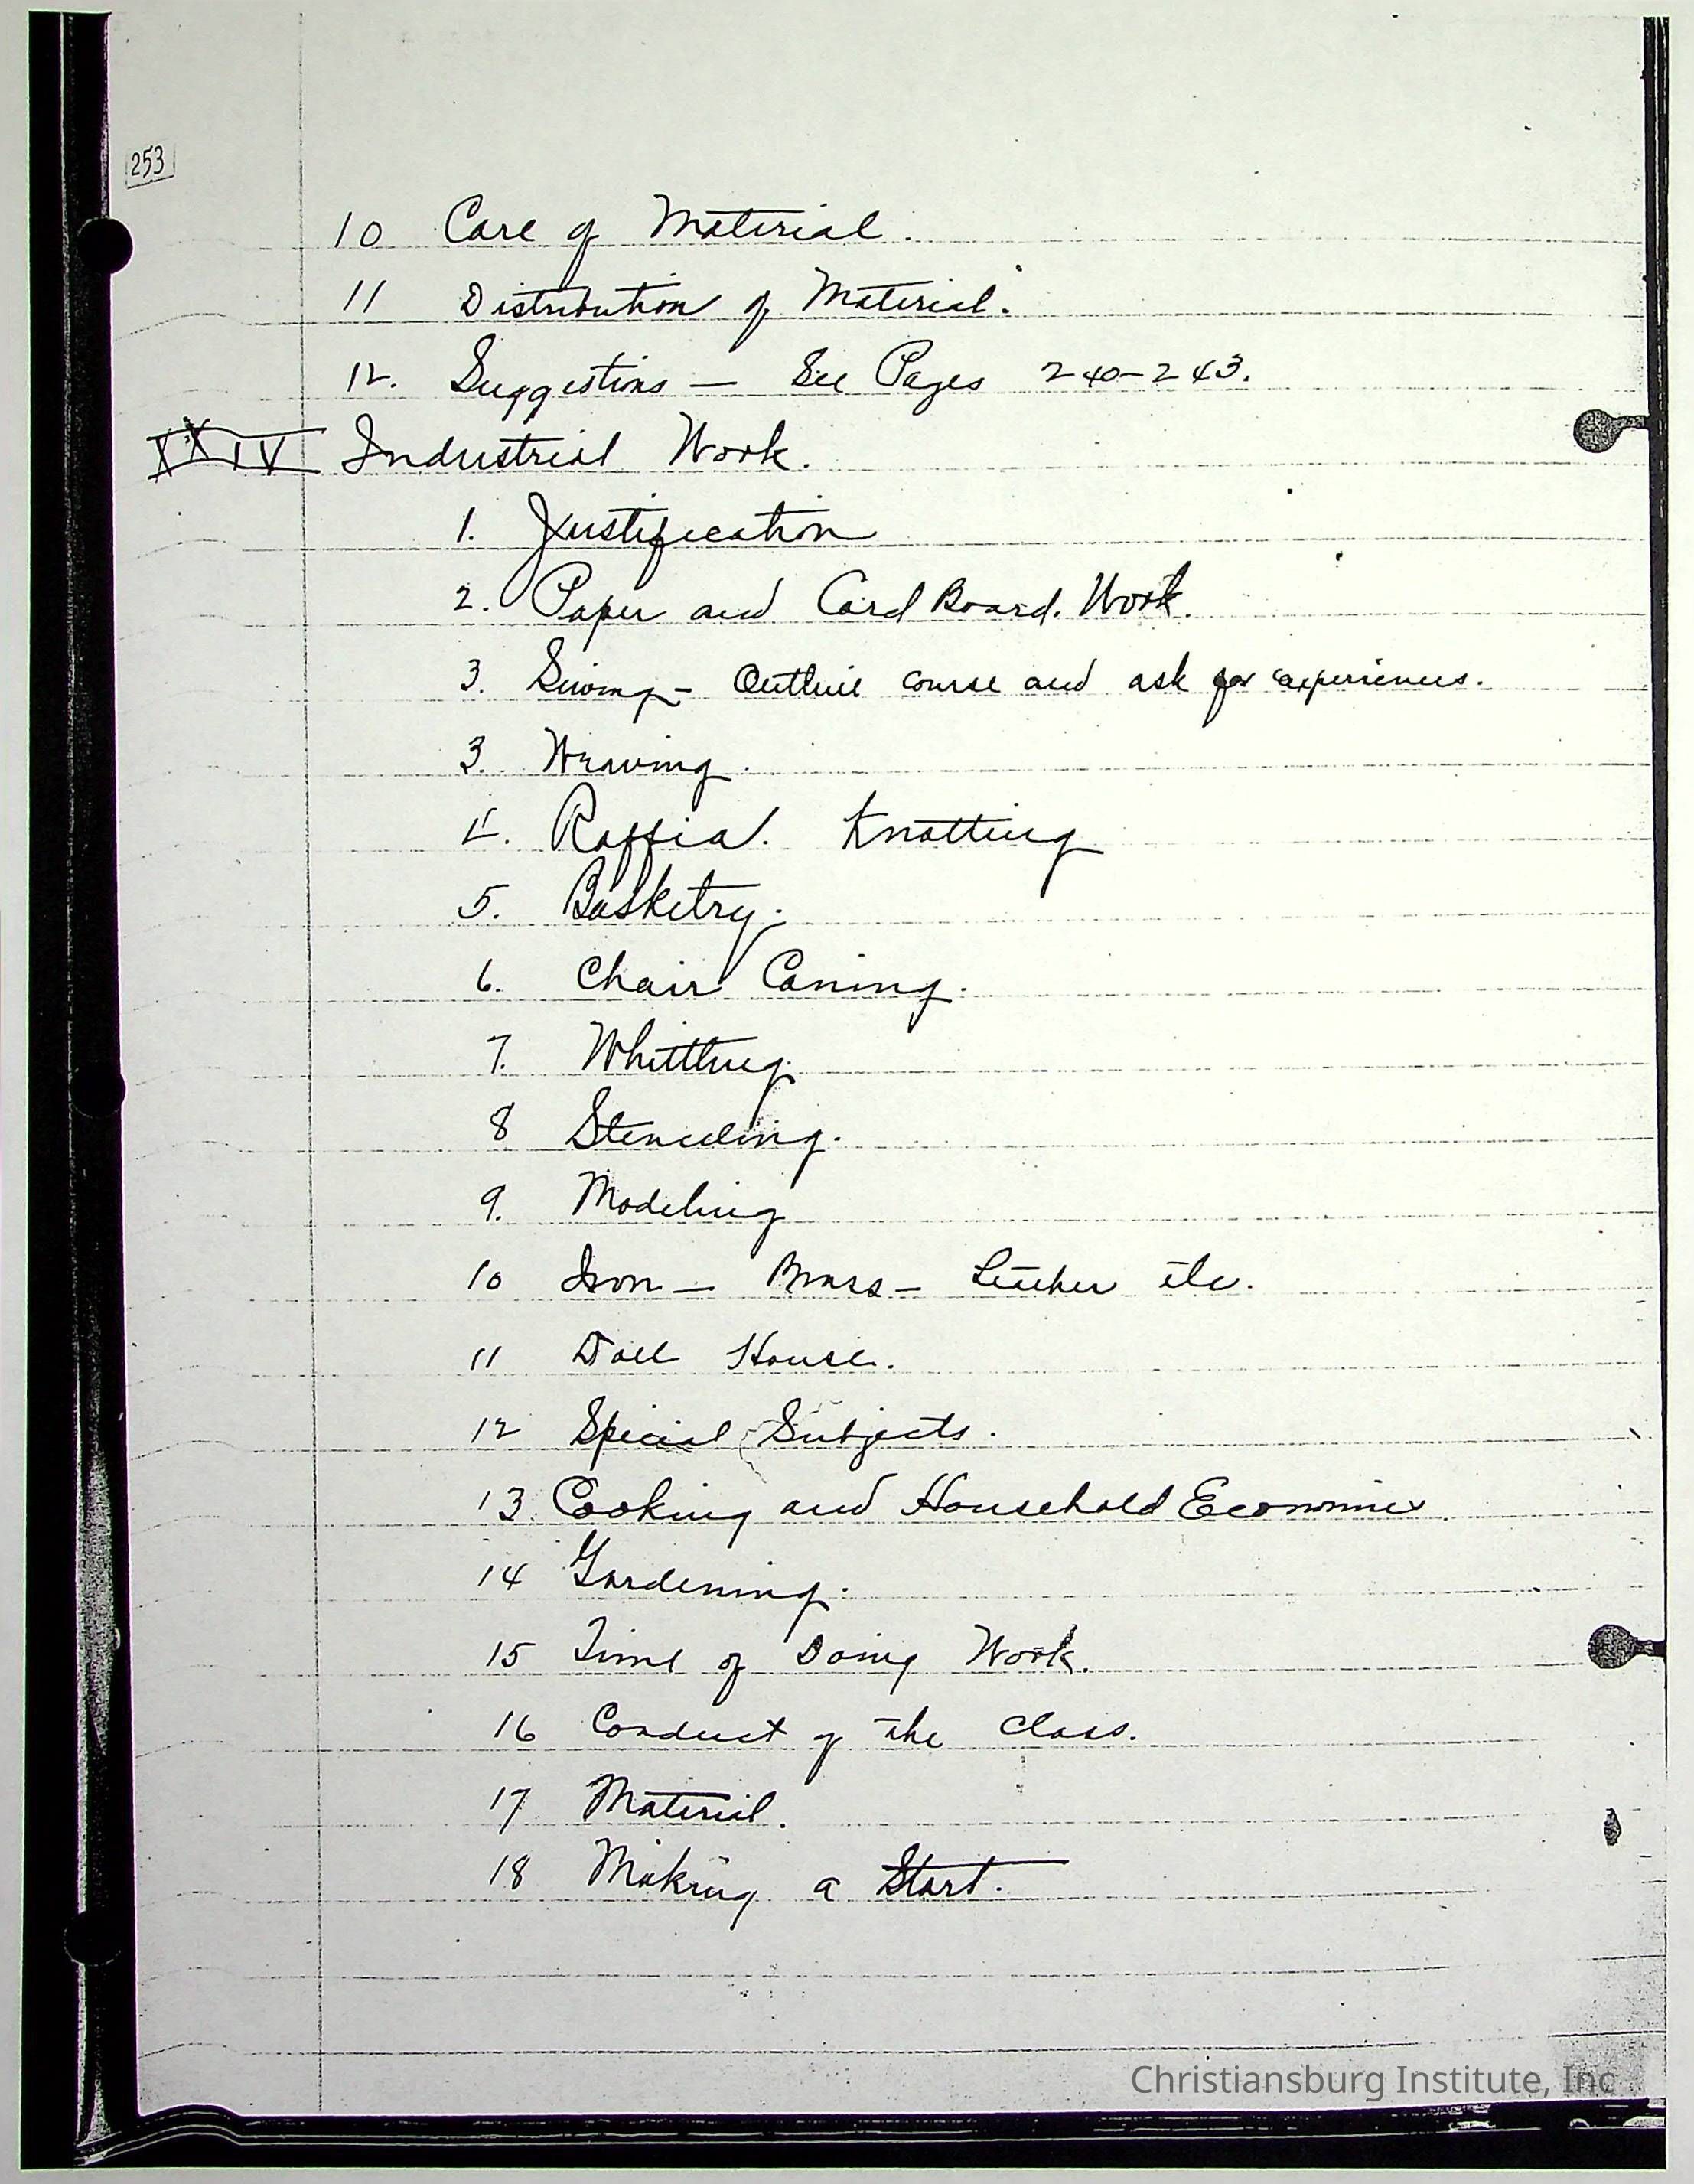 253
10 Care of Material.
11 Distribution of Material.
12. Suggestions — See Pages 240-243.
XXIV Industrial Work.
1. Justification
2. Paper and Card Board. Work.
3. Sewing - Outline course and ask for experiences.
3. Weaving.
4. Raffia. Knotting
5. Basketry.
6. Chair Caning.
7. Whittling.
8 Stenciling.
9. Modeling
10 Iron — Brass — Leather etc.
11 Doll House.
12 Special Subjects.
13. Cooking and Household Economics
14 Gardening.
15 Time of Doing Work.
16 Conduct of the Class.
17 Material.
18 Making a Start.
Christiansburg Institute, Inc